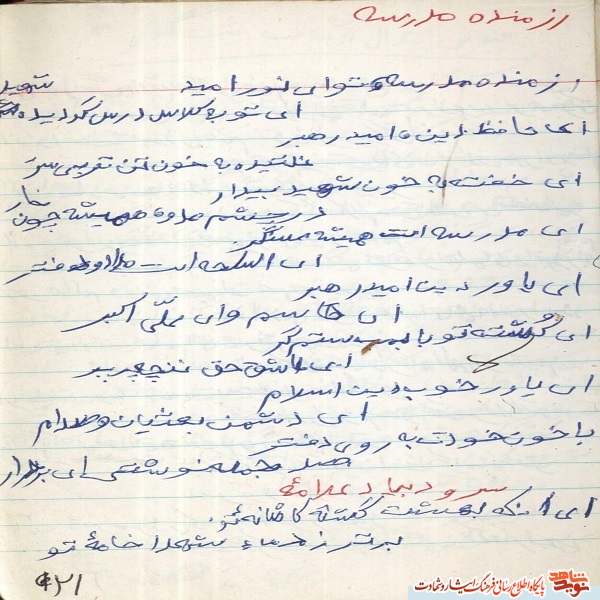 رزمنده مدرسه
رزمنده مدرسه توای نور امید شهید
ای تو به کلاس درس گردیده
ای حافظ دین و امید رهبر
غلتیده به خون تن
ای خفته به خون شهید بیدار
در چشم عدو همیشه چون خار
ای مدرسه ات همیشه سنگر
ای اسلحه ات دفتر
ای یاور دین امید رهبر
ای قاسم وای علی اکبر
ای کشته تو با بمب ستم گر
ای عاشق حق غنچه پرپر
ای یاور خوب دین اسلام
ای دشمن بعثیان و صدام
با خون خودت به روی دفتر
صد جمله نوشتی ای برادر
سرود بیاد علامه
ای آنکه بهشت گشته کاشانه تو
برتر ز دماء شهدا خامهٔ تو
۲۱
شاهد نوید
پایگاه اطلاع رسانی فرهنگ ایثار و شهادت